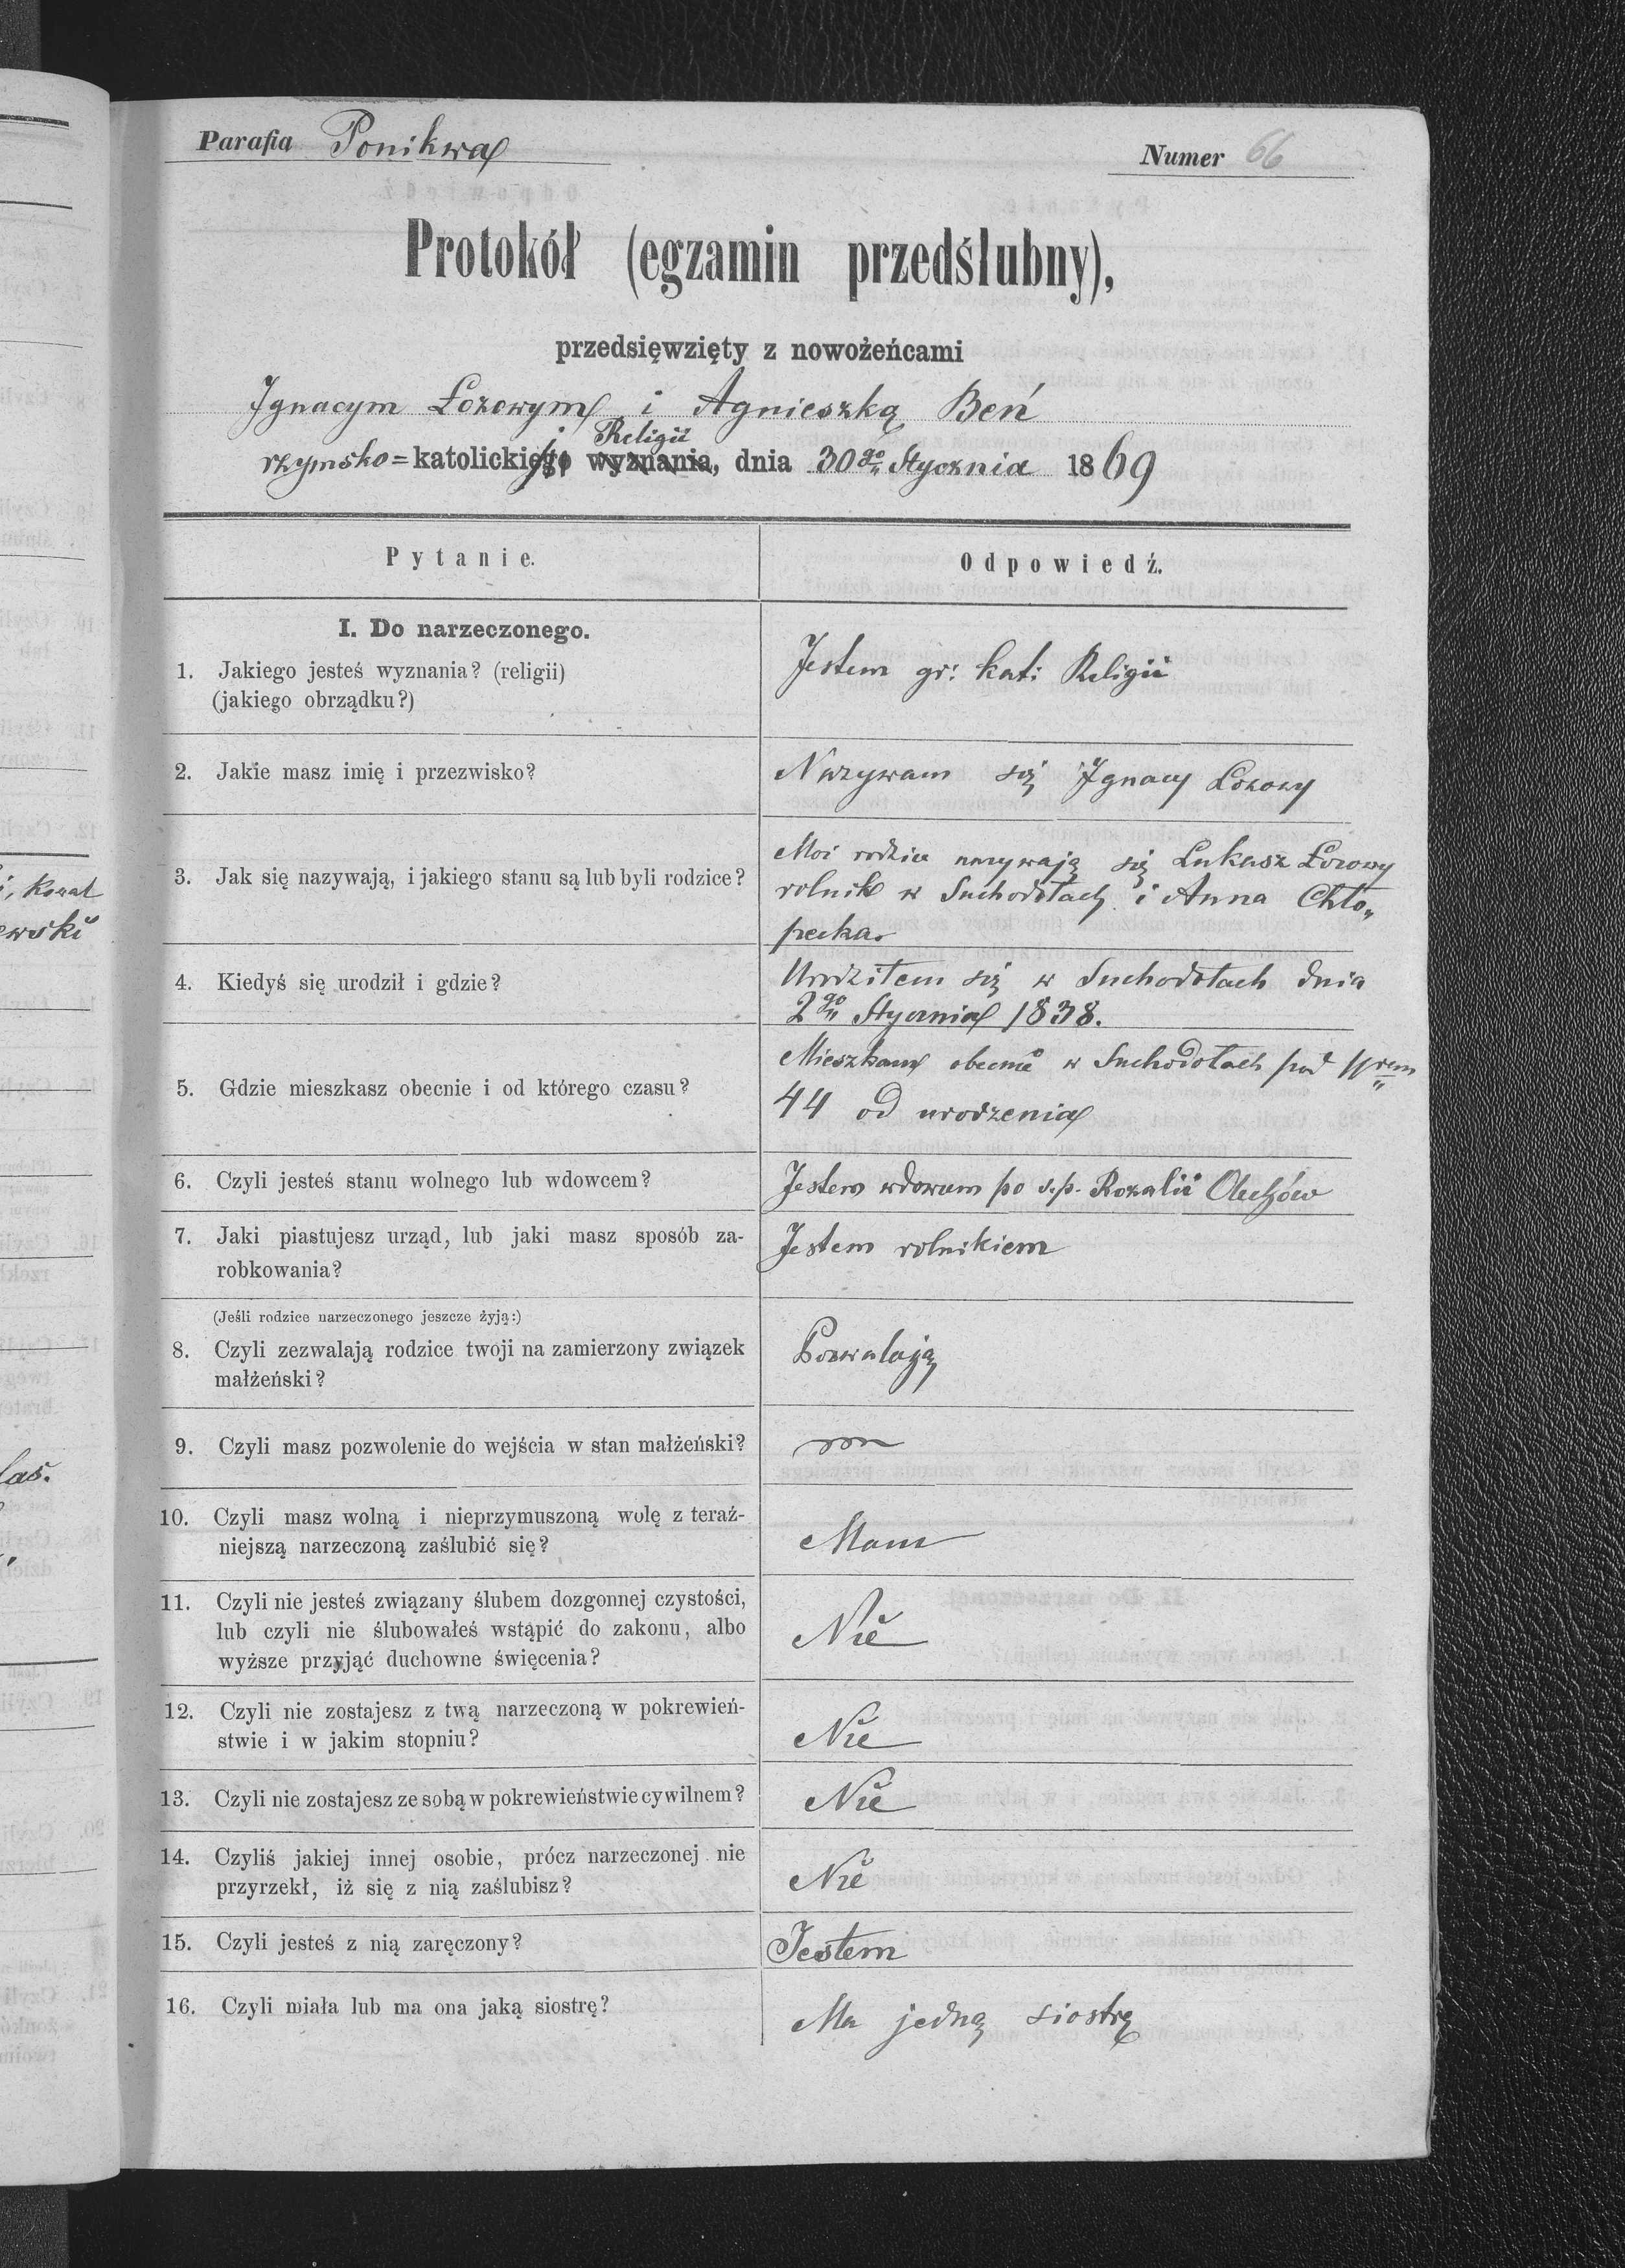 Parafia Ponikwa
Numer 66
Protokół (egzamin przedślubny),
przedsięwzięty z nowożeńcami
Ignacym Łozowym i Agnieszką Beń
Religii
rzymsko=katolickiego wyznania, dnia 30go Stycznia 1869
Pytanie.
Odpowiedź.
I. Do narzeczonego.
1. Jakiego jesteś wyznania? (religii)
(jakiego obrządku?)
Jestem gr: kat: Religii
2. Jakie masz imię i przezwisko?
Nazywam się Ignacy Łozowy
3. Jak się nazywają, i jakiego stanu są lub byli rodzice?
Moi rodzice nazywają się Łukasz Łozowy
rolnik w Suchodołach i Anna Chło„
pecka.
4. Kiedyś się urodził i gdzie?
Urodziłem się w Suchodołach dnia
2go Stycznia 1838.
5. Gdzie mieszkasz obecnie i od którego czasu?
Mieszkam obecnie w Suchodołach pod Nrem
44 od urodzenia
6. Czyli jesteś stanu wolnego lub wdowcem?
Jestem wdowcem po s.p. Rozalii
7. Jaki piastujesz urząd, lub jaki masz sposób za-
robkowania?
Jestem rolnikiem
(Jeśli rodzice narzeczonego jeszcze żyją:)
8. Czyli zezwalają rodzice twoji na zamierzony związek
małżeński?
Pozwalają
9. Czyli masz pozwolenie do wejścia w stan małżeński?
10. Czyli masz wolną i nieprzymuszoną wolę z teraź-
niejszą narzeczoną zaślubić się?
Mam
11. Czyli nie jesteś związany ślubem dozgonnej czystości,
lub czyli nie ślubowałeś wstąpić do zakonu, albo
wyższe przyjąć duchowne święcenia?
Nie
12. Czyli nie zostajesz z twą narzeczoną w pokrewień-
stwie i w jakim stopniu?
Nie
13. Czyli nie zostajesz ze sobą w pokrewieństwie cywilnem?
Nie
14. Czyliś jakiej innej osobie, prócz narzeczonej nie
przyrzekł, iż się z nią zaślubisz?
Nie
15. Czyli jesteś z nią zaręczony?
Jestem
16. Czyli miała lub ma ona jaką siostrę?
Ma jedną siostrę